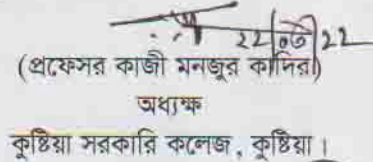 ২২|০৩|২২
(প্রফেসর কাজী মনজুর কাদির)
অধ্যক্ষ
কুষ্টিয়া সরকারি কলেজ, কুষ্টিয়া।